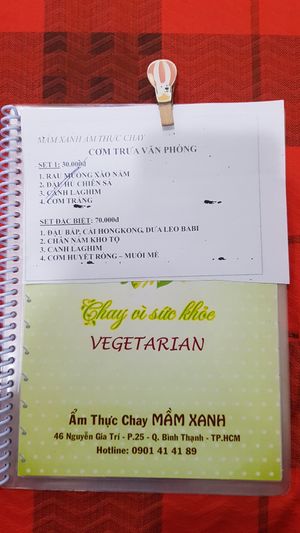 MẦM XANH ẨM THỰC CHAY
CƠM TRƯA VĂN PHÒNG
SET 1: 30.000đ
1. RAU MƯỚNG XÀO NẤM
2. ĐẬU HŨ CHIÊN SẢ
3. CANH LAGHIM
4. CƠM TRẮNG
SET ĐẶC BIỆT: 70.000đ
1. ĐẬU BẮP, CẢI HONGKONG, DƯA LEO BABI
2. CHÂN NẤM KHO TỘ
3. CANH LAGHIM
4. CƠM HUYẾT RỒNG – MUỐI MÈ
Chay vì sức khỏe
VEGETARIAN
Ẩm Thực Chay MẦM XANH
46 Nguyễn Gia Trí - P.25 - Q. Bình Thạnh - TP.HCM
Hotline: 0901 41 41 89